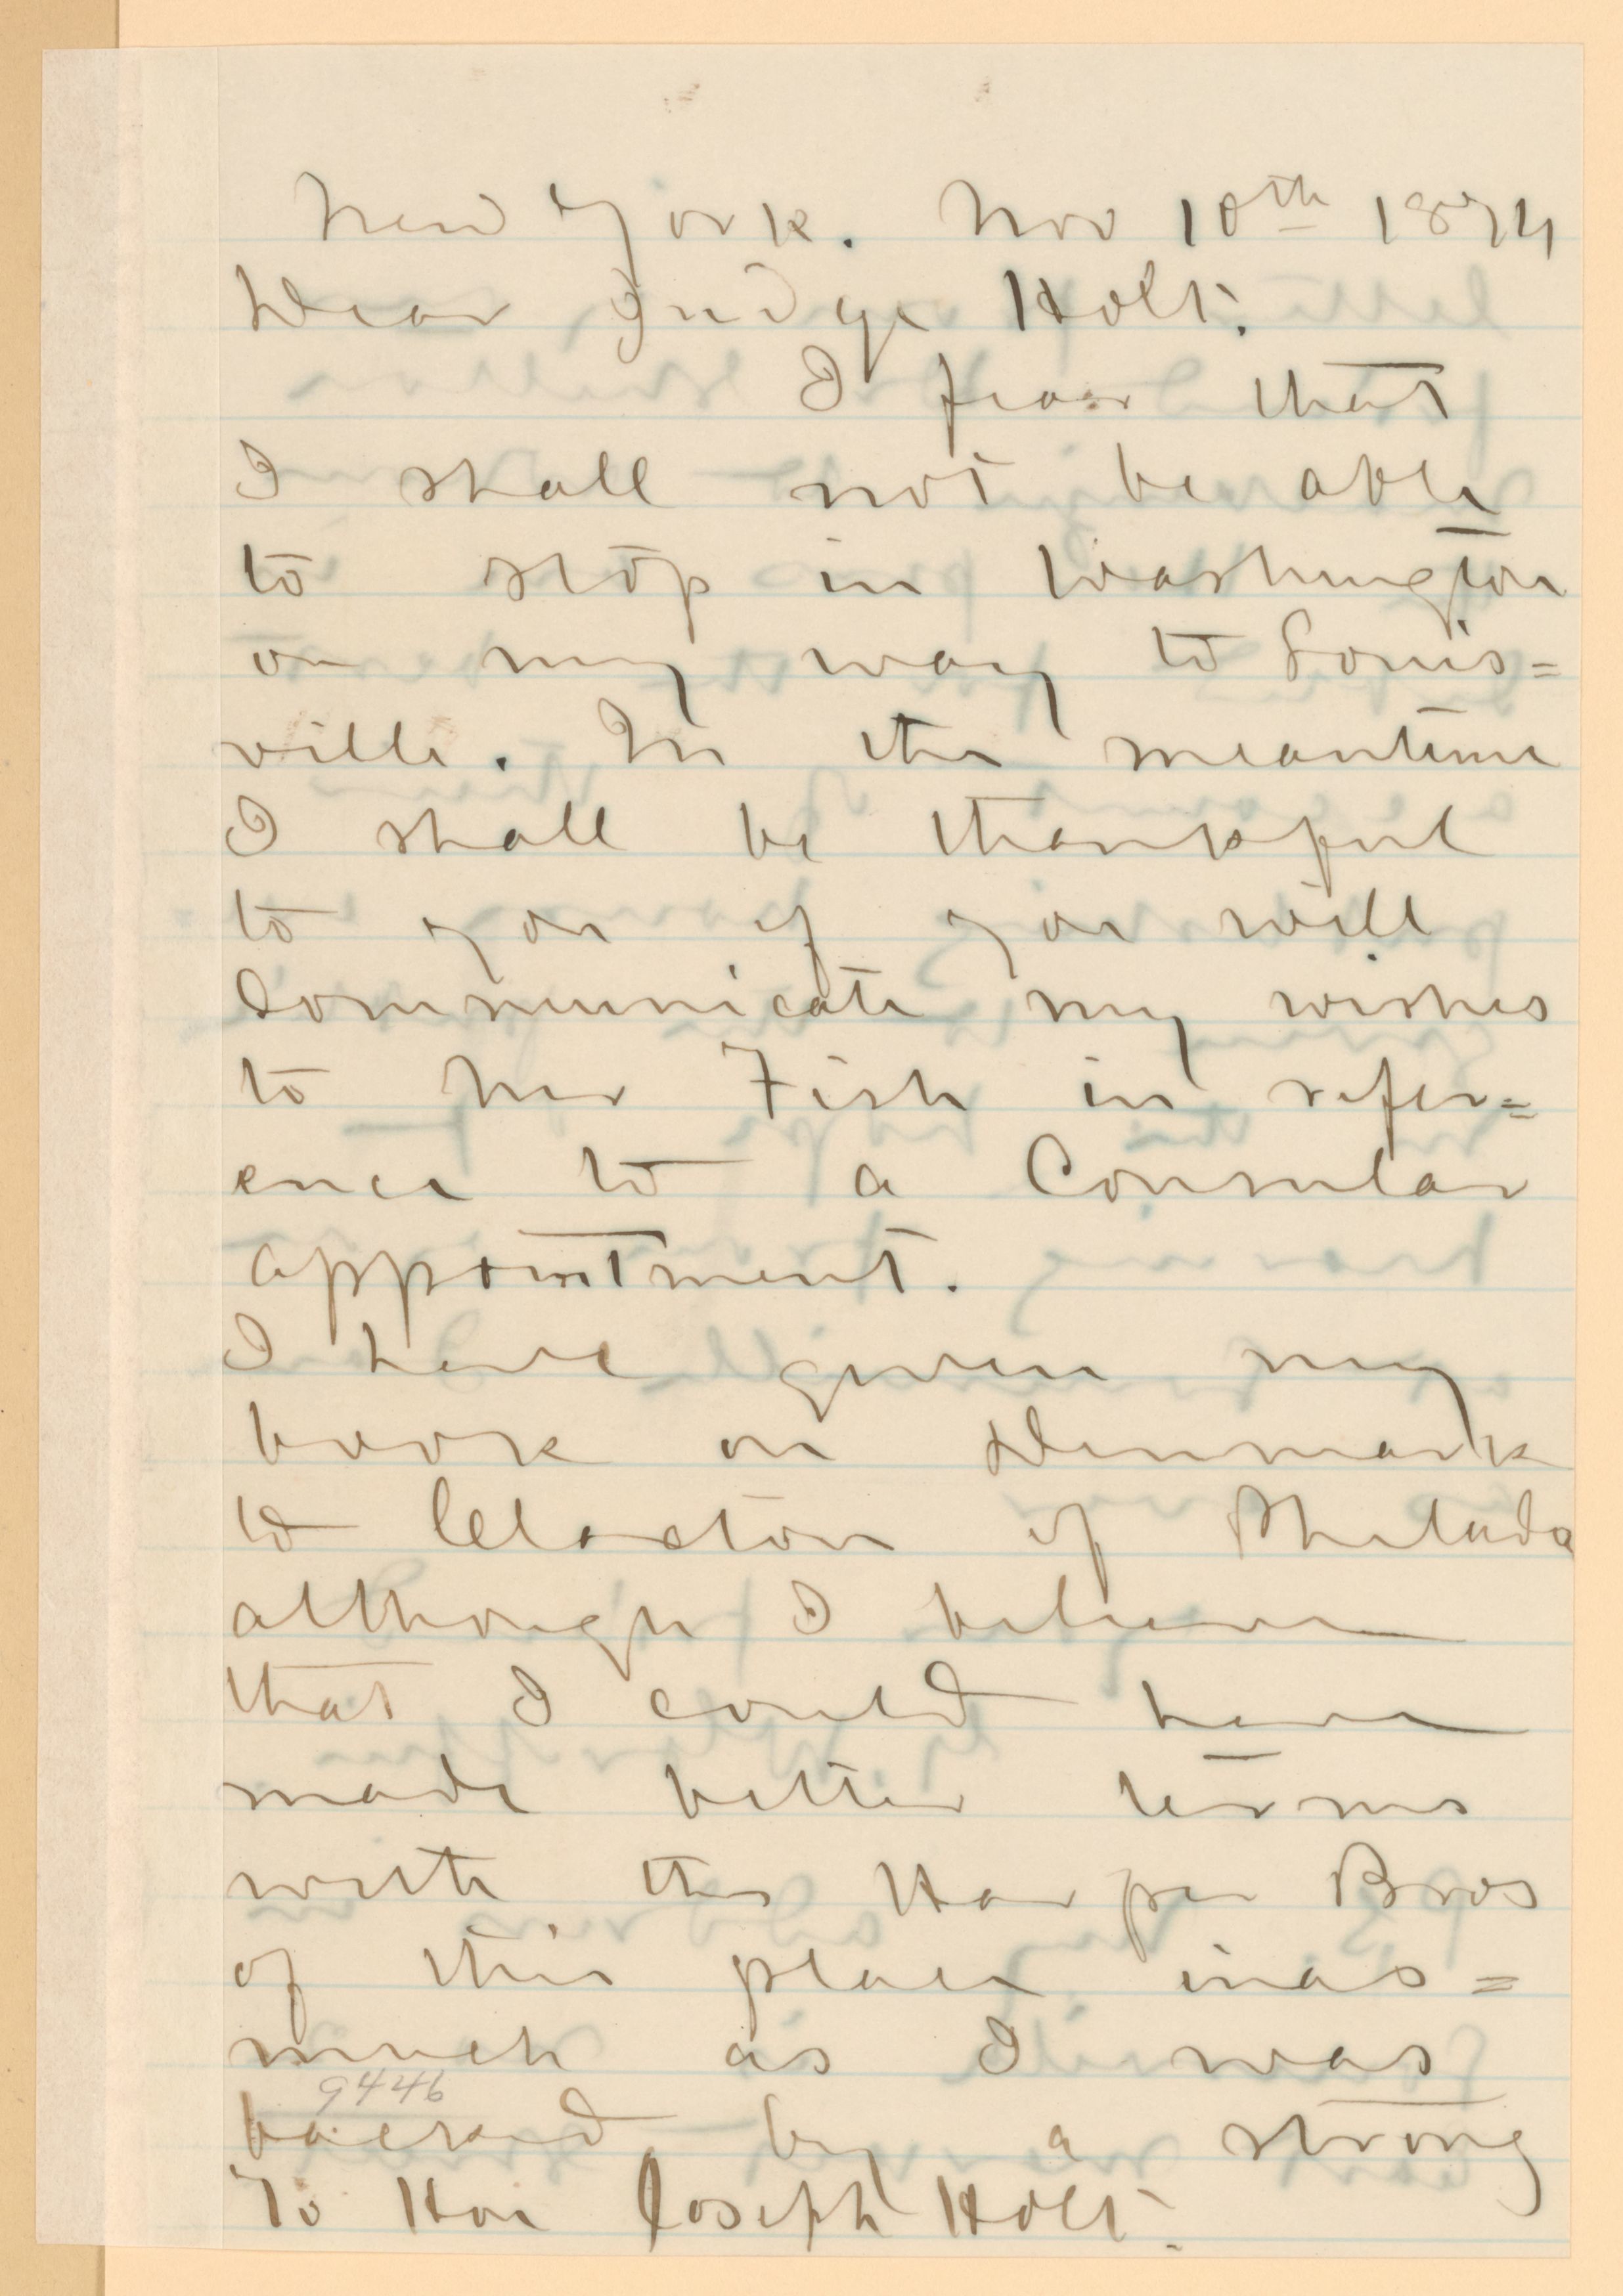 New York. Nov 10th 1874
Dear Judge Holt.
I fear that
I shall not be able
to stop in Washington
on my way to Louis=
ville. In the meantime
I shall be thankful
to you if you will
Communicate my wishes
to Mr Fish in refer=
ence to a Consular
appointment.
I have given my
book on Denmark
to Claxton of Philada
although I believe
that I could have
made better terms
with the Harper Bros
of this place inas=
much as I was
9446
backed by a strong
To Hon Joseph Holt.